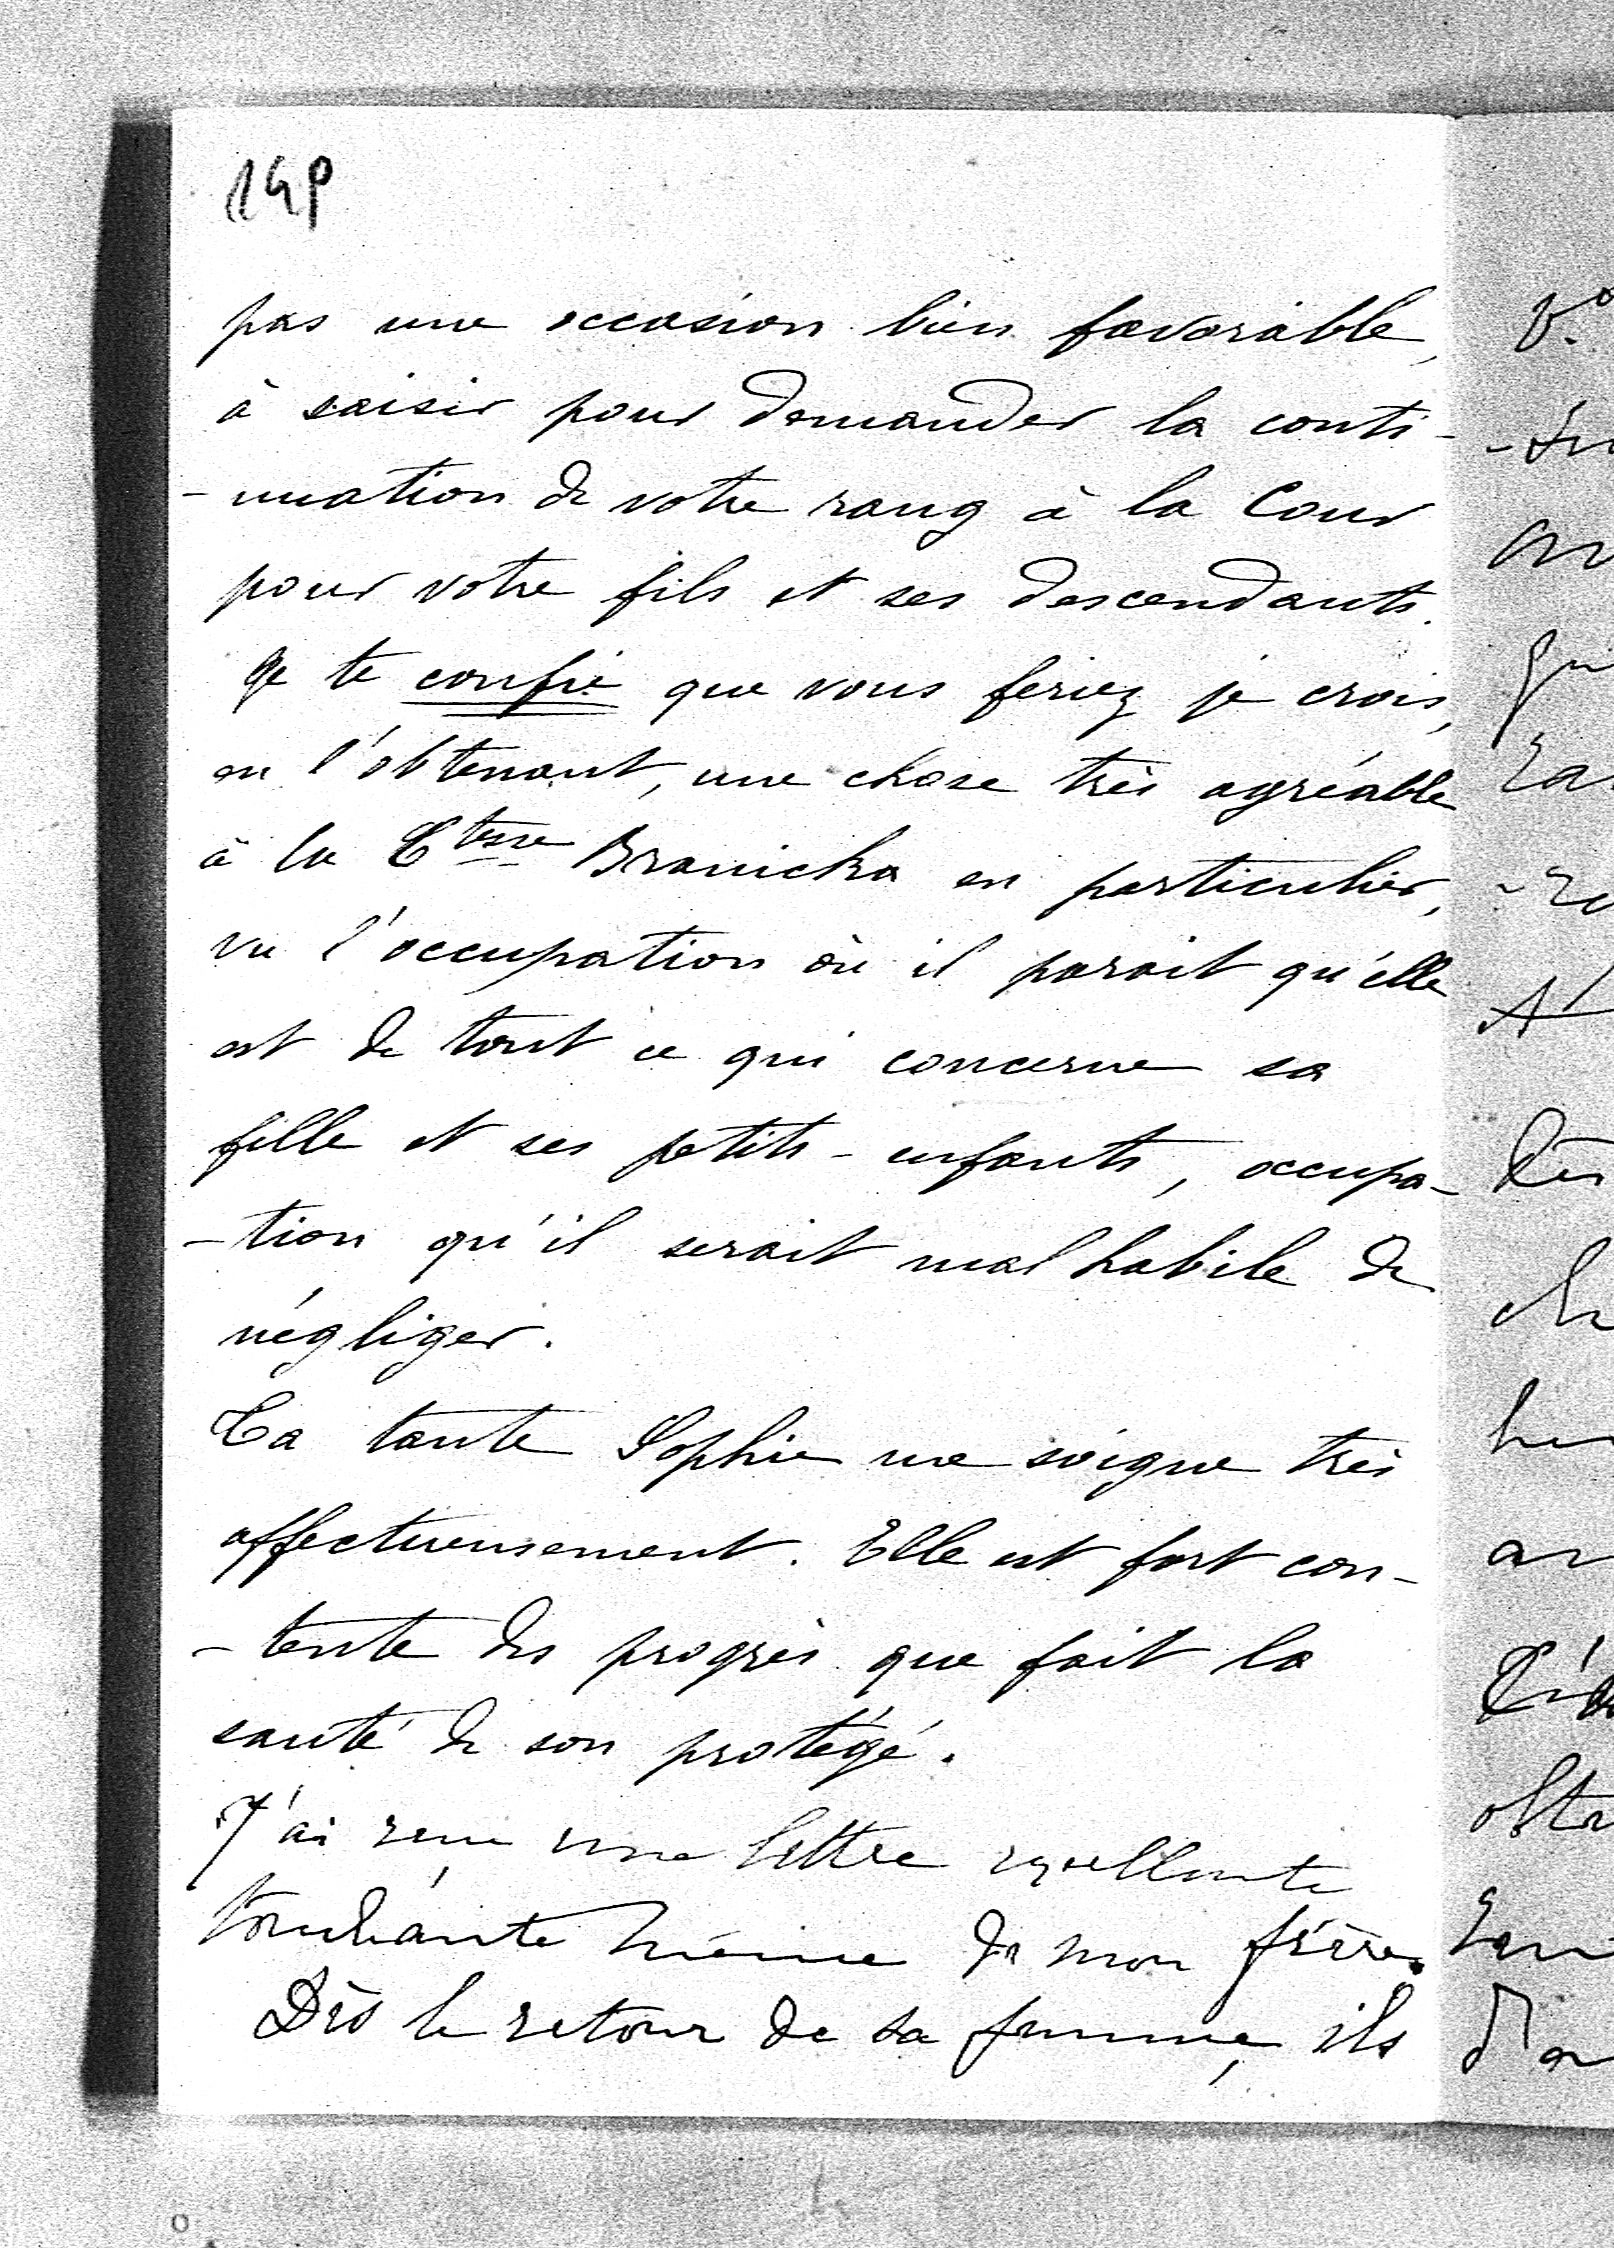 149
pas une occasion bien favorable,
à saisir pour demander la conti-
-nuation de votre rang à la Cour
pour votre fils et ses descendants.
Je te confie que vous feriez je crois,
en l'obtenant, une chose très agréable
à la Ctesse Branicka en particulier,
vu l'occupation où il parait qu'elle
est de tout ce qui concerne sa
fille et ses petits-enfants, occupa-
-tion qu'il serait mal habile de
négliger.
Ta tante Sophie me soigne très
affectueusement. Elle est fort con-
-tente des progrès que fait la
santé de son protégé.
J'ai reçu une lettre excellente
touchante même de mon frère.
Dès le retour de sa femme, ils